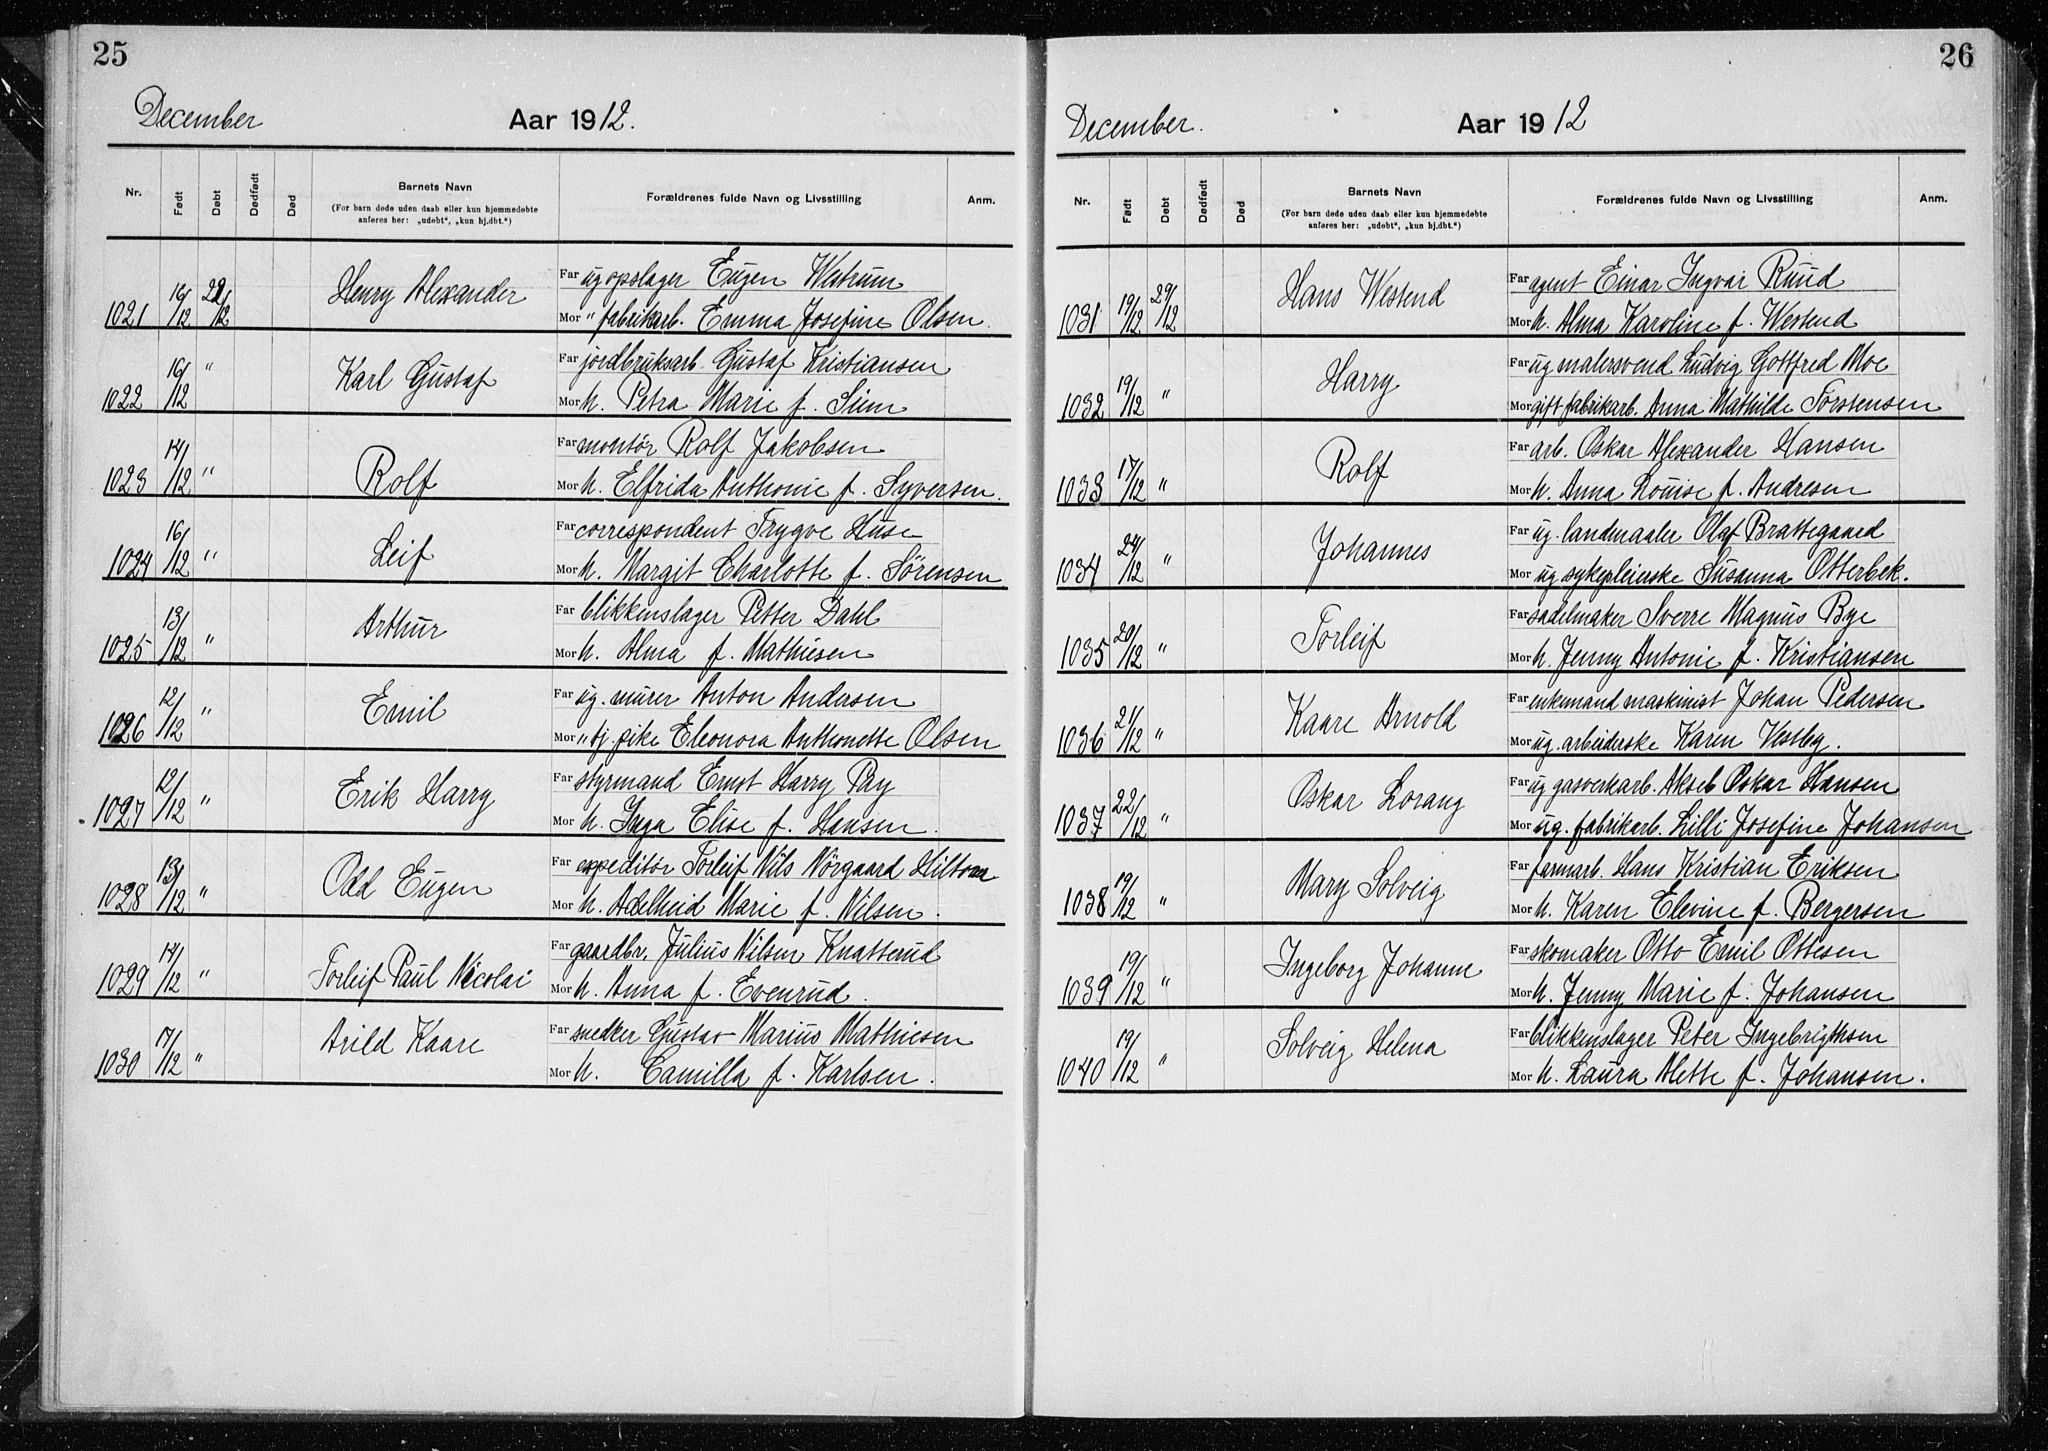 25
December Aar 1912.
Nr. Født Døbt Dødfødt Død Barnets Navn Forældrenes fulde Navn og Livsstilling Anm.
(For barn døde uden daab eller kun hjemmedøbte
anføres her: „udøbt“, „kun hj.dbt.“)
Far ug opslager Eugen Westrum
1021 16/12 22/12 Henry Alexander
Mor " fabrikarb. Emma Josefine Olsen.
Far jordbruksarb. Gustaf Kristiansen
1022 16/12 " Karl Gustaf
Mor h. Petra Marie f. Sim
Far montør Rolf Jakobsen
1023 14/12 " Rolf
Mor h. Elfrida Anthonie f. Syversen.
Far correspondent Trygve Huse
1024 16/12 " Leif
Mor h. Margit Charlotte f. Sørensen
Far blikkenslager Petter Dahl
1025 13/12 " Arthur
Mor h. Alma f. Mathiesen
Far ug. murer Anton Andersen
1026 12/12 " Emil
Mor " tj. pike Eleonora Anthonette Olsen
Far styrmand Ernst Harry Pay
1027 12/12 " Erik Harry
Mor h. Inga Elise f. Hansen.
Far expeditør Torleif Nils Nørgaard Hiltom
1028 13/12 " Odd Eugen
Mor h. Adelheid Marie f. Nilsen.
Far gaardbr. Julius Nilsen Knatterud
1029 14/12 " Torleif Paul Nicolai
Mor h. Anna f. Evenrud.
Far snedker Gustav Marius Mathiesen
1030 17/12 " Arild Kaare
Mor h. Camilla f. Karlsen.
26
December. Aar 1912
Nr. Født Døbt Dødfødt Død Barnets Navn Forældrenes fulde Navn og Livsstilling Anm.
(For barn døde uden daab eller kun hjemmedøbte
anføres her: „udøbt“, „kun hj.dbt.“)
Far agent Einar Ingvar Ruud
1031 19/12 29/12 Hans Westend
Mor h. Alma Karoline f. Westend
Far ug malersvend Ludvig Gottfred Moe
1032 19/12 " Harry
Mor gift fabrikarb. Anna Mathilde Torstensen
Far arb. Oskar Alexander Hansen
1033 17/12 " Rolf
Mor h. Anna Louise f. Andresen
Far ug. landmaaler Olaf Brattegaard
1034 24/12 " Johannes
Mor ug sykepleierske Susanna Otterbek.
Far sadelmaker Sverre Magnus Bye
1035 20/12 " Torleif
Mor h. Jenny Antonie f. Kristiansen
Far enkemand maskinist Johan Pedersen
1036 21/12 " Kaare Arnold
Mor ug. arbeiderske Karen Vestby.
Far ug gasverkarb. Aksel Oskar Hansen
1037 22/12 " Oskar Lorang
Mor ug. fabrikarb. Lilli Josefine Johansen
Far farmarb. Hans Kristian Eriksen
1038 19/12 " Mary Solveig
Mor h. Karen Elevine f. Bergersen
Far skomaker Otto Emil Ottesen
1039 19/12 " Ingeborg Johanne
Mor h. Jenny Marie f. Johansen
Far blikkenslager Peter Ingebrigtsen
1040 19/12 " Solveig Helena
Mor h. Laura Mette f. Johansen.